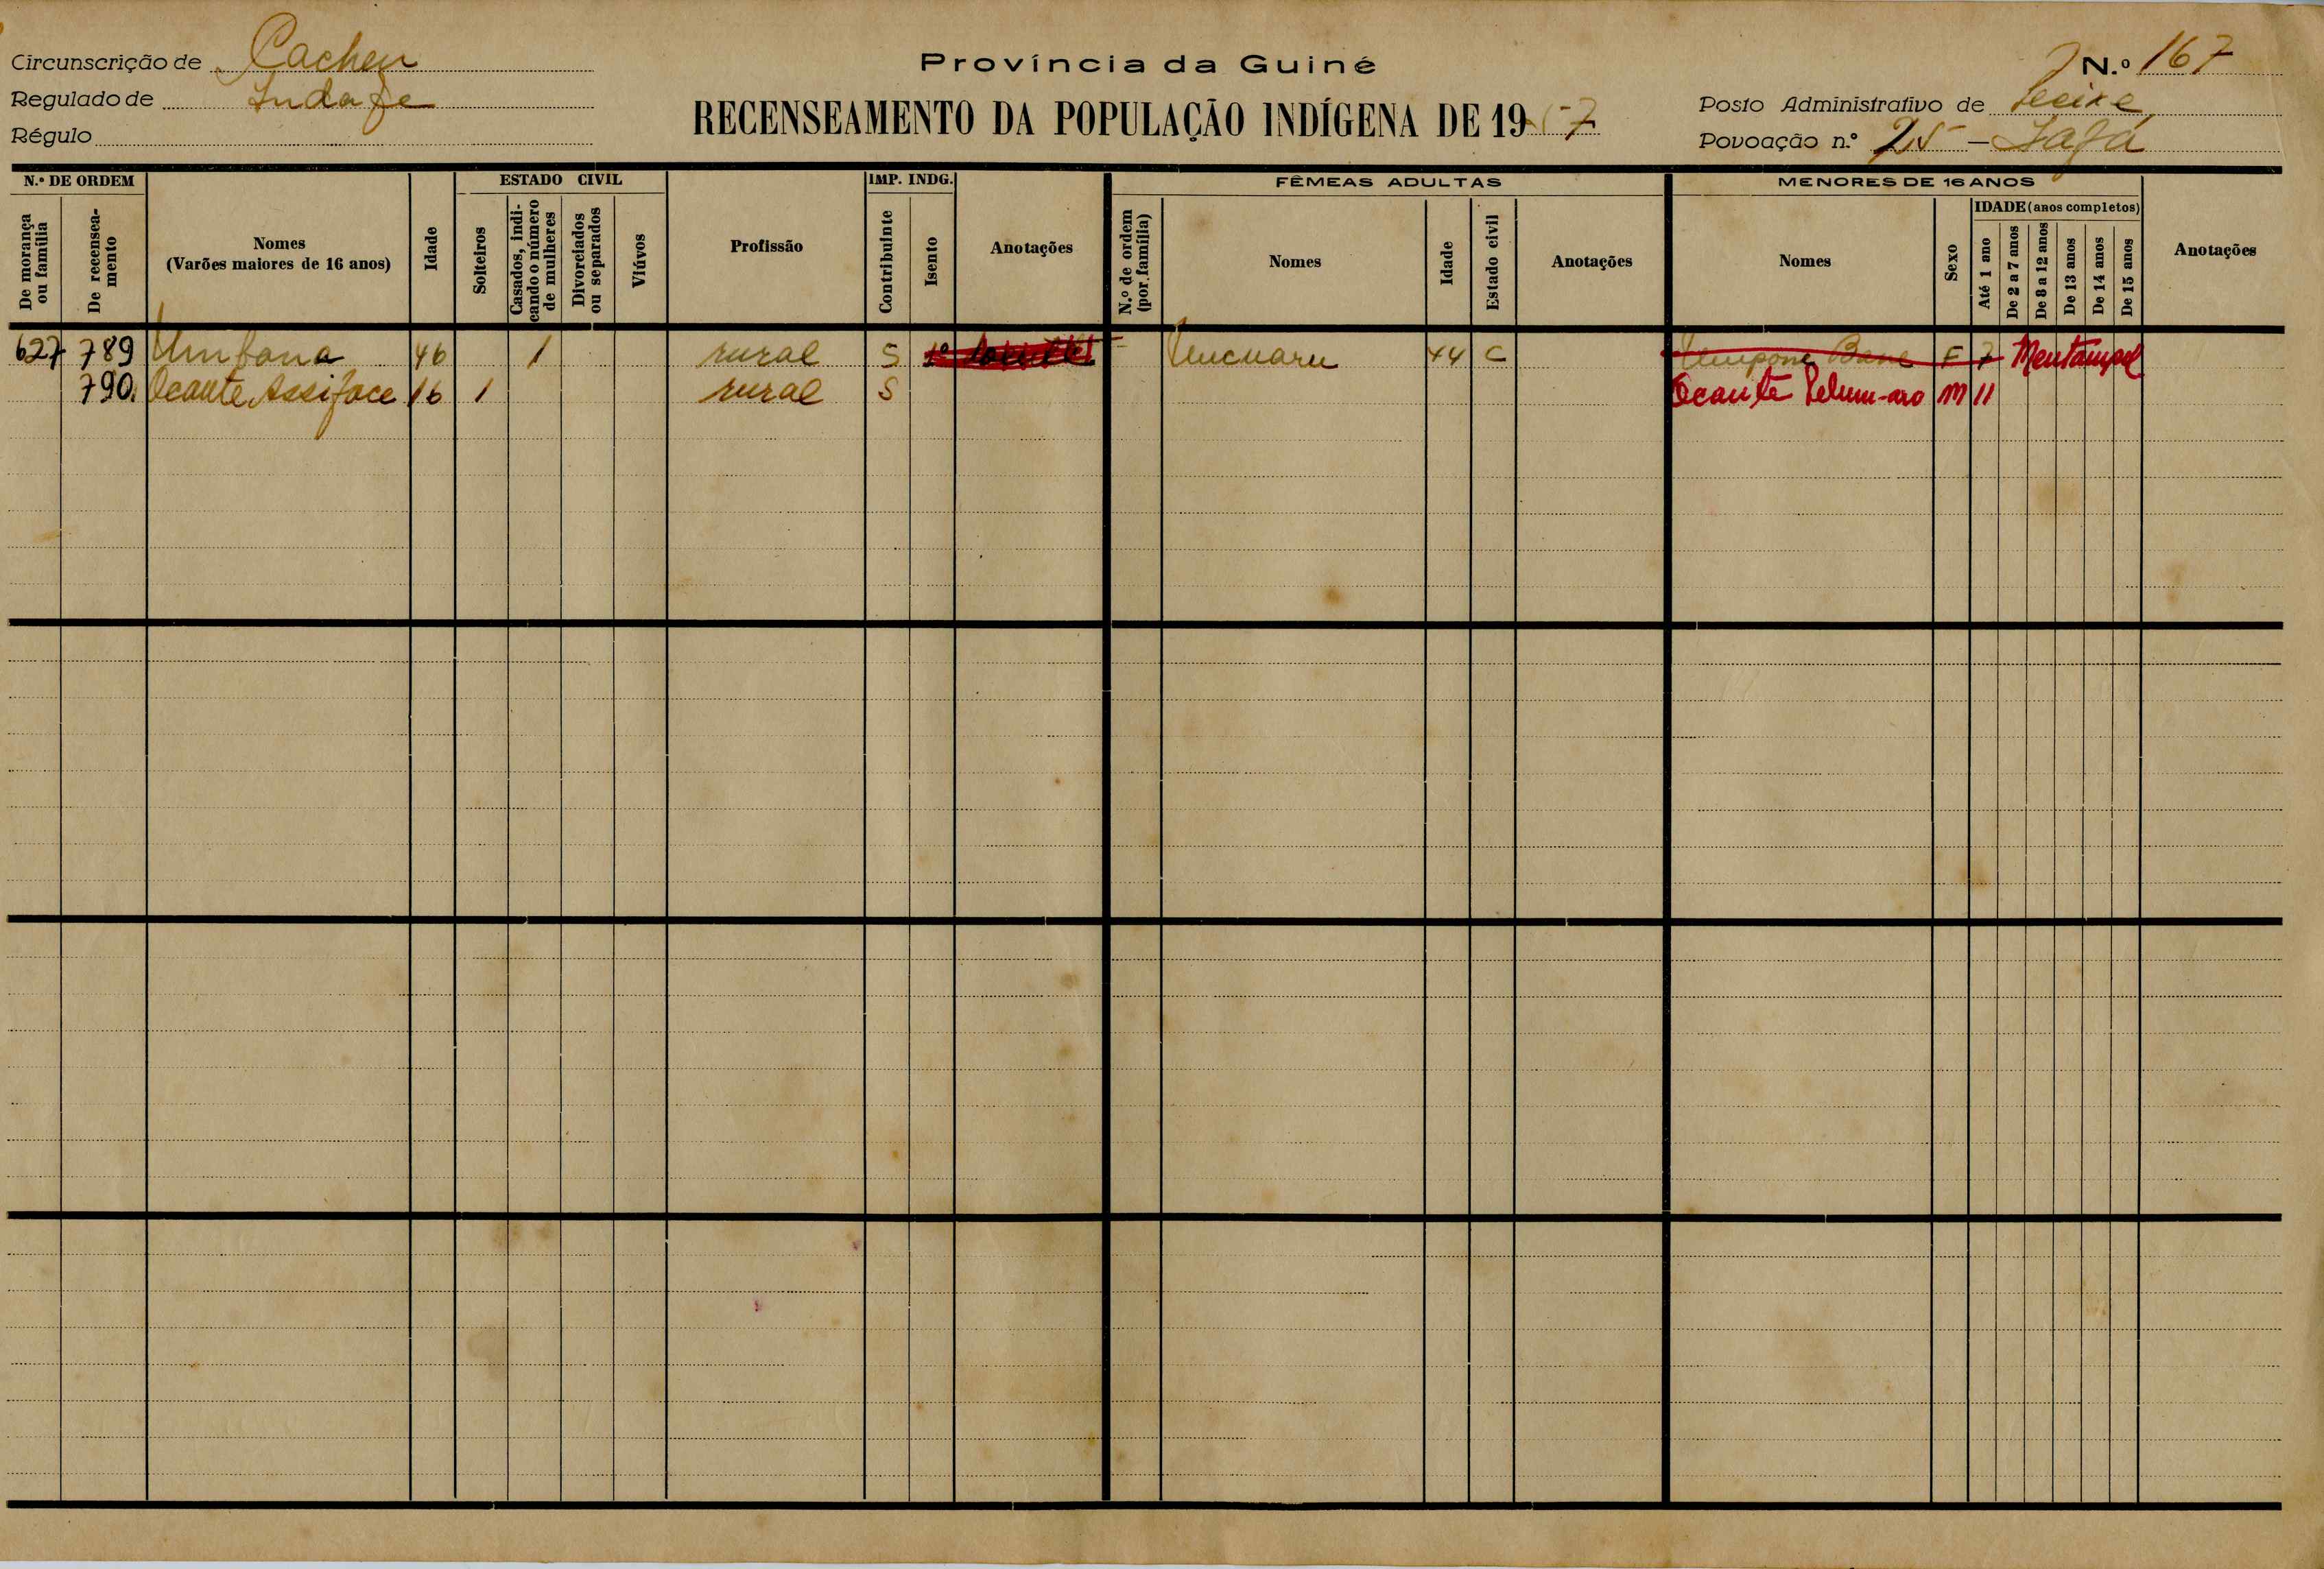 Circunscrição de Cacheu
Regulado de
Régulo
Província da Guiné
RECENSEAMENTO DA POPULAÇÃO INDÍGENA DE 1957
N.º 167
Posto Administrativo de
Povoação n.º 25 –
N.º DE ORDEM
De morança ou família
De recenseamento
Nomes
(Varões maiores de 16 anos)
Idade
ESTADO CIVIL
Solteiros
Casados, indicando o número de mulheres
Divorciados ou separados
Viúvos
Profissão
IMP. INDG.
Contribuinte
Isento
Anotações
FÊMEAS ADULTAS
N.º de ordem (por família)
Nomes
Idade
Estado civil
Anotações
MENORES DE 16 ANOS
Nomes
Sexo
IDADE (anos completos)
Até 1 ano
De 2 a 7 anos
De 8 a 12 anos
De 13 anos
De 14 anos
De 15 anos
Anotações
627 789 46 1 rural S 44 C F 7
790 Ocante Assiface 16 1 rural S Ocante M 11